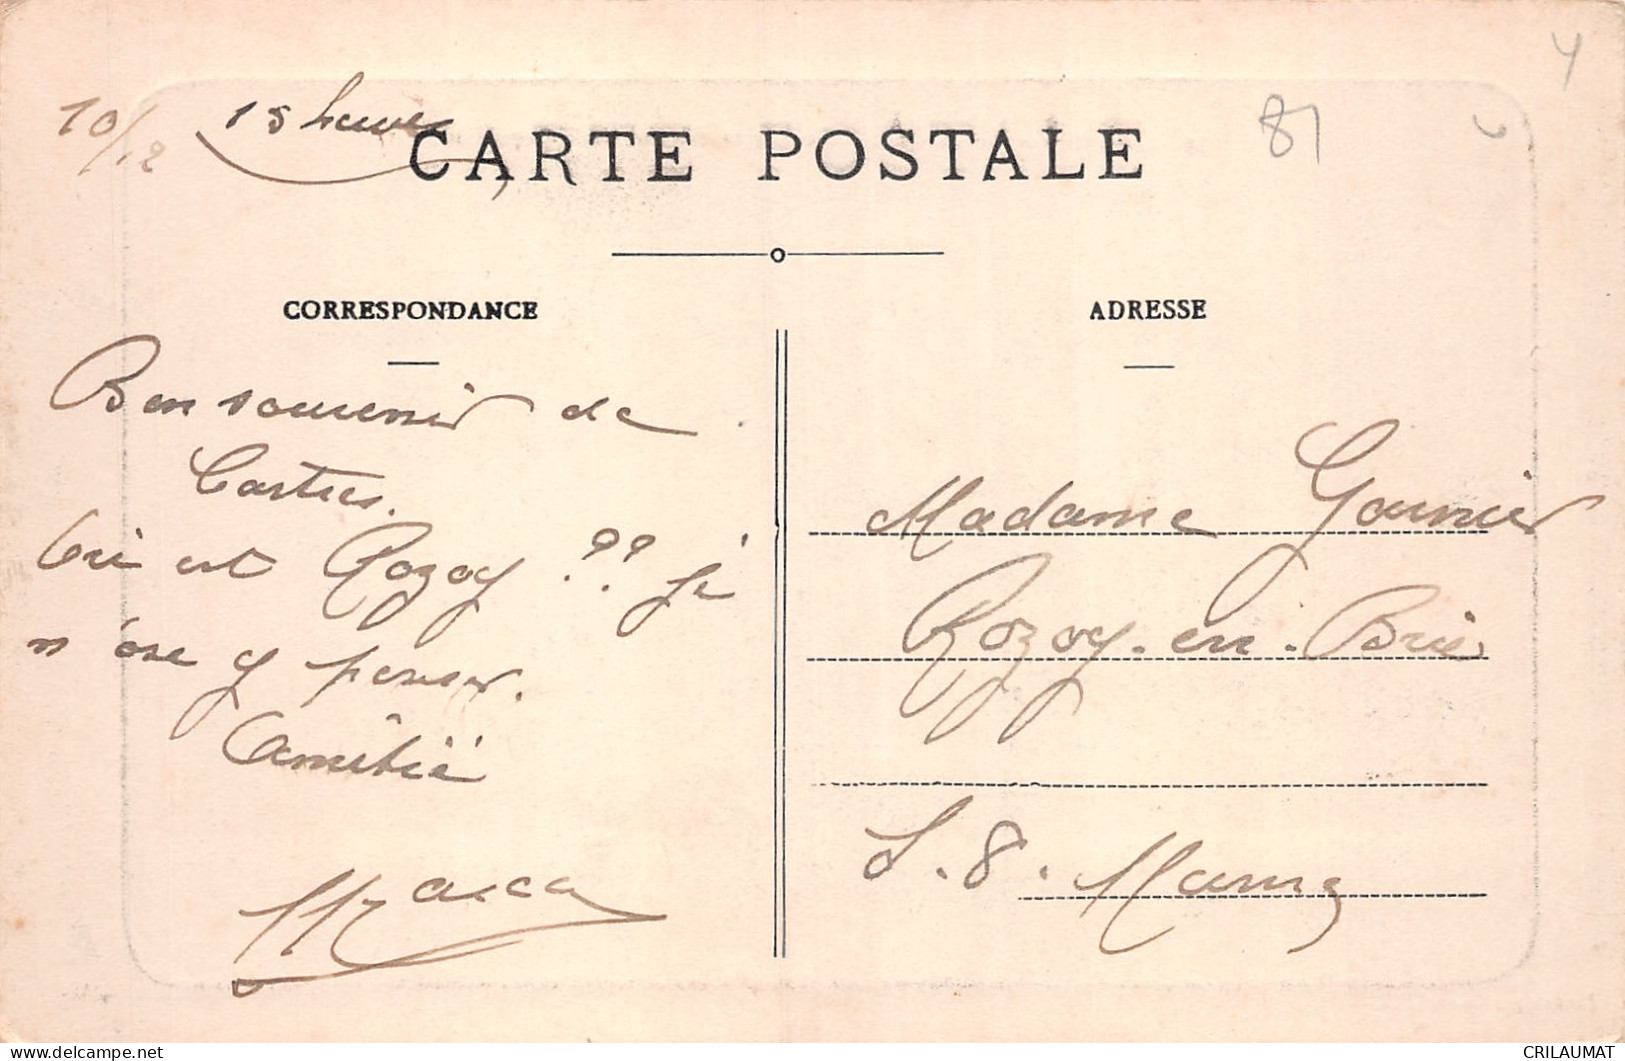 10/12 15 heures
81
4
CARTE POSTALE
CORRESPONDANCE
Bon souvenir de
Castres.
Où est Rozoy ?? je
n'ose y penser.
Amitié
ADRESSE
Madame Garnier
Rozoy-en-Brie
S.&. Marne
CRILAUMAT